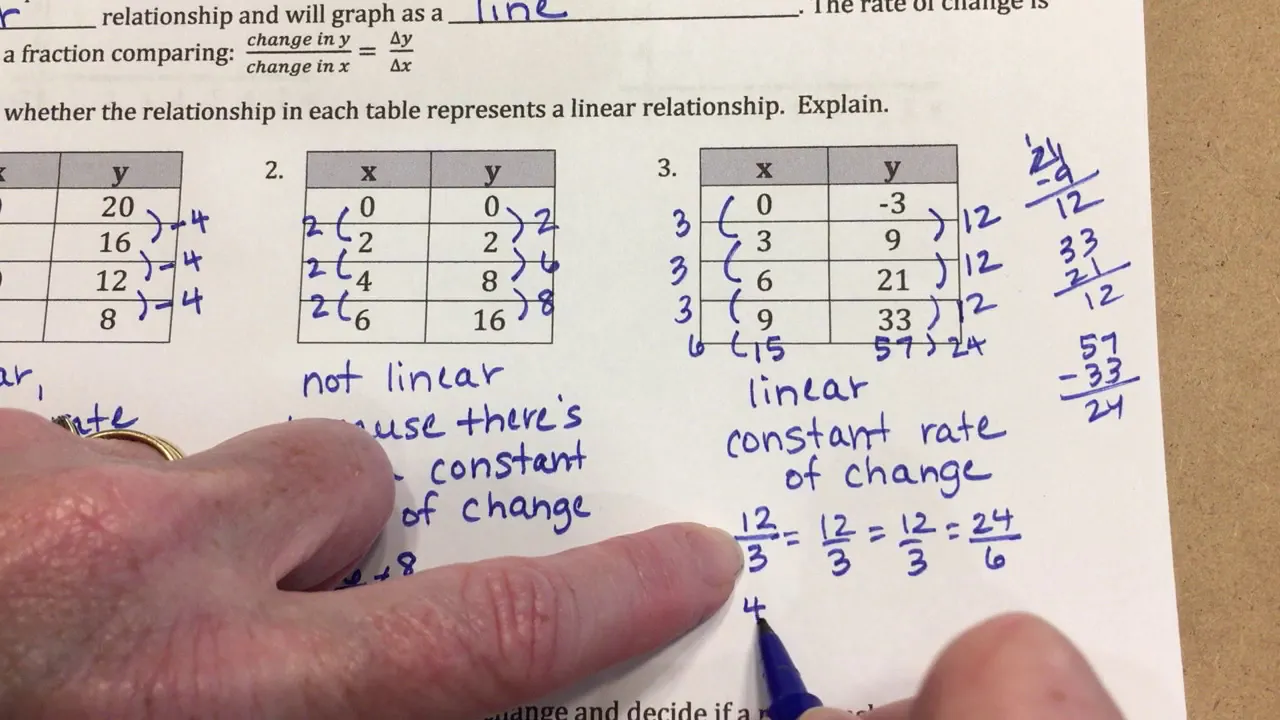 relationship and will graph as a line. The rate of change is
a fraction comparing: change in y / change in x = Δy / Δx
whether the relationship in each table represents a linear relationship. Explain.
y
20
16
12
8
-4
-4
-4
2.
x y
0 0
2 2
4 8
6 16
2 2
2 6
2 8
not linear
there's
constant
of change
8
3.
x y
0 -3
3 9
6 21
9 33
15 57
3 12
3 12
3 12
6 24
linear
constant rate
of change
12/3 = 12/3 = 12/3 = 24/6
4
-9
12
33
21
12
57
-33
24
and decide if a